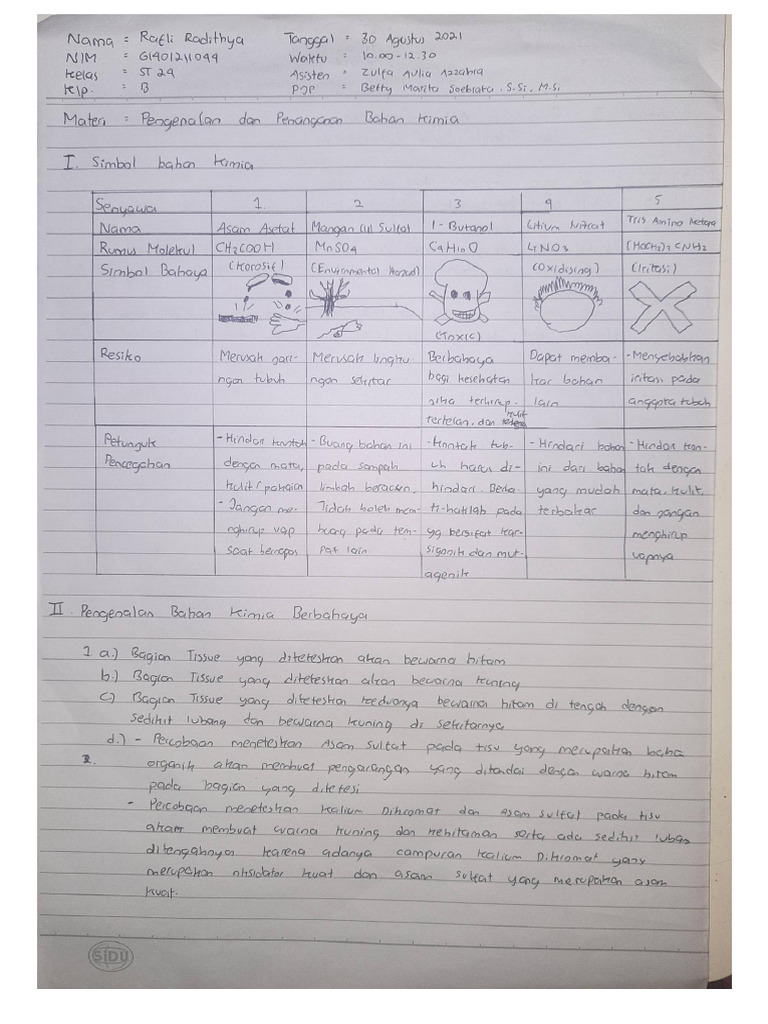 Nama : Rafli Radithya Tanggal : 30 Agustus 2021
NIM : G1401211044 Waktu : 10.00-12.30
Kelas : ST 29 Asisten : Zulfa Aulia Azzahra
Klp. : B PJP : Betty Marita Soebrata, S.Si, M.Si
Materi : Pengenalan dan Penanganan Bahan Kimia
I. Simbol bahan kimia
Senyawa 1. 2 3 4 5
Nama Asam Asetat Mangan (II) Sulfat 1-Butanol Litium Nitrat Tris Amino
Rumus Molekul CH3COOH MnSO4 C4H10O LiNO3 (HOCH2)3CNH2
Simbol Bahaya (Korosif) (Environmental Hazard) (Oxidising) (Iritasi)
(Toxic)
Resiko Merusak jari- Merusak lingku Berbahaya Dapat memba- -Menyebabkan
ngan tubuh ngan sekitar bagi kesehatan kar bahan iritasi pada
jika terhirup, lain anggota tubuh
kulit
tertelan, dan
Petunjuk -Hindari kontak -Buang bahan ini -Kontak tub- -Hindari bahan -Hindar kon-
Pencegahan dengan mata, pada sampah uh harus di- ini dari bahan tak dengan
kulit/pakaian limbah beracun, hindari. Berha- yang mudah mata, kulit,
-Jangan me- Tidak boleh mem- ti-hatilah pada terbakar dan jangan
nghirup uap buang pada tem- yg bersifat kar- menghirup
saat bernapas pat lain siogenik dan mut- uapnya
agenik
II. Pengenalan Bahan Kimia Berbahaya
1 a.) Bagian Tissue yang diteteskan akan bewarna hitam
b.) Bagian Tissue yang diteteskan akan bewarna kuning
c) Bagian Tissue yang diteteskan keduanya bewarna hitam di tengah dengan
sedikit lubang dan bewarna kuning di sekitarnya
d.) - Percobaan meneteskan Asam Sulfat pada tisu yang merupakan baha
2. organik akan membuat pengarangan yang ditandai dengan warna hitam
pada bagian yang ditetesi
- Percobaan meneteskan Kalium Dikromat dan Asam Sulfat pada tisu
akam membuat warna kuning dan kehitaman serta ada sedikit luban
ditengahnya karena adanya campuran Kalium Dikromat yang
merupakan oksidator kuat dan asam sulfat yang merupakan asam
kuat.
SiDU